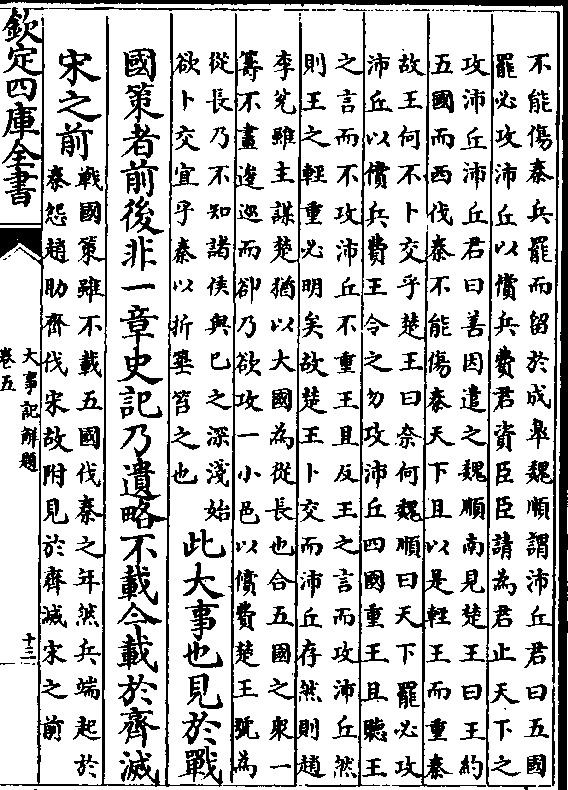 不能傷秦兵罷而留於成皋魏順謂沛丘君曰五國
罷必攻沛丘以償兵費君資臣臣請為君止天下之
攻沛丘沛丘君曰善因遣之魏順南見楚王曰王約
五國而西伐秦不能傷秦天下且以是輕王而重秦
故王何不卜交乎楚王曰奈何魏順曰天下罷必攻
沛丘以償兵費王令之勿攻沛丘四國重王且聽王
之言而不攻沛丘不重王且反王之言而攻沛丘然
則王之輕重必明矣故楚王卜交而沛丘存然則趙
李兊雖主謀楚猶以大國為從長也合五國之衆一
籌不畫逡巡而卻乃欲攻一小邑以償費楚王號為
從長乃不知諸侯與已之深淺始
欲卜交宜乎秦以折箠笞之也
此大事也見於戰
國策者前後非一章史記乃遺略不載今載於齊滅
宋之前
戰國策雖不載五國伐秦之年然兵端起於
秦怨趙助齊伐宋故附見於齊滅宋之前
欽定四庫全書
大事記解題
卷五
十三